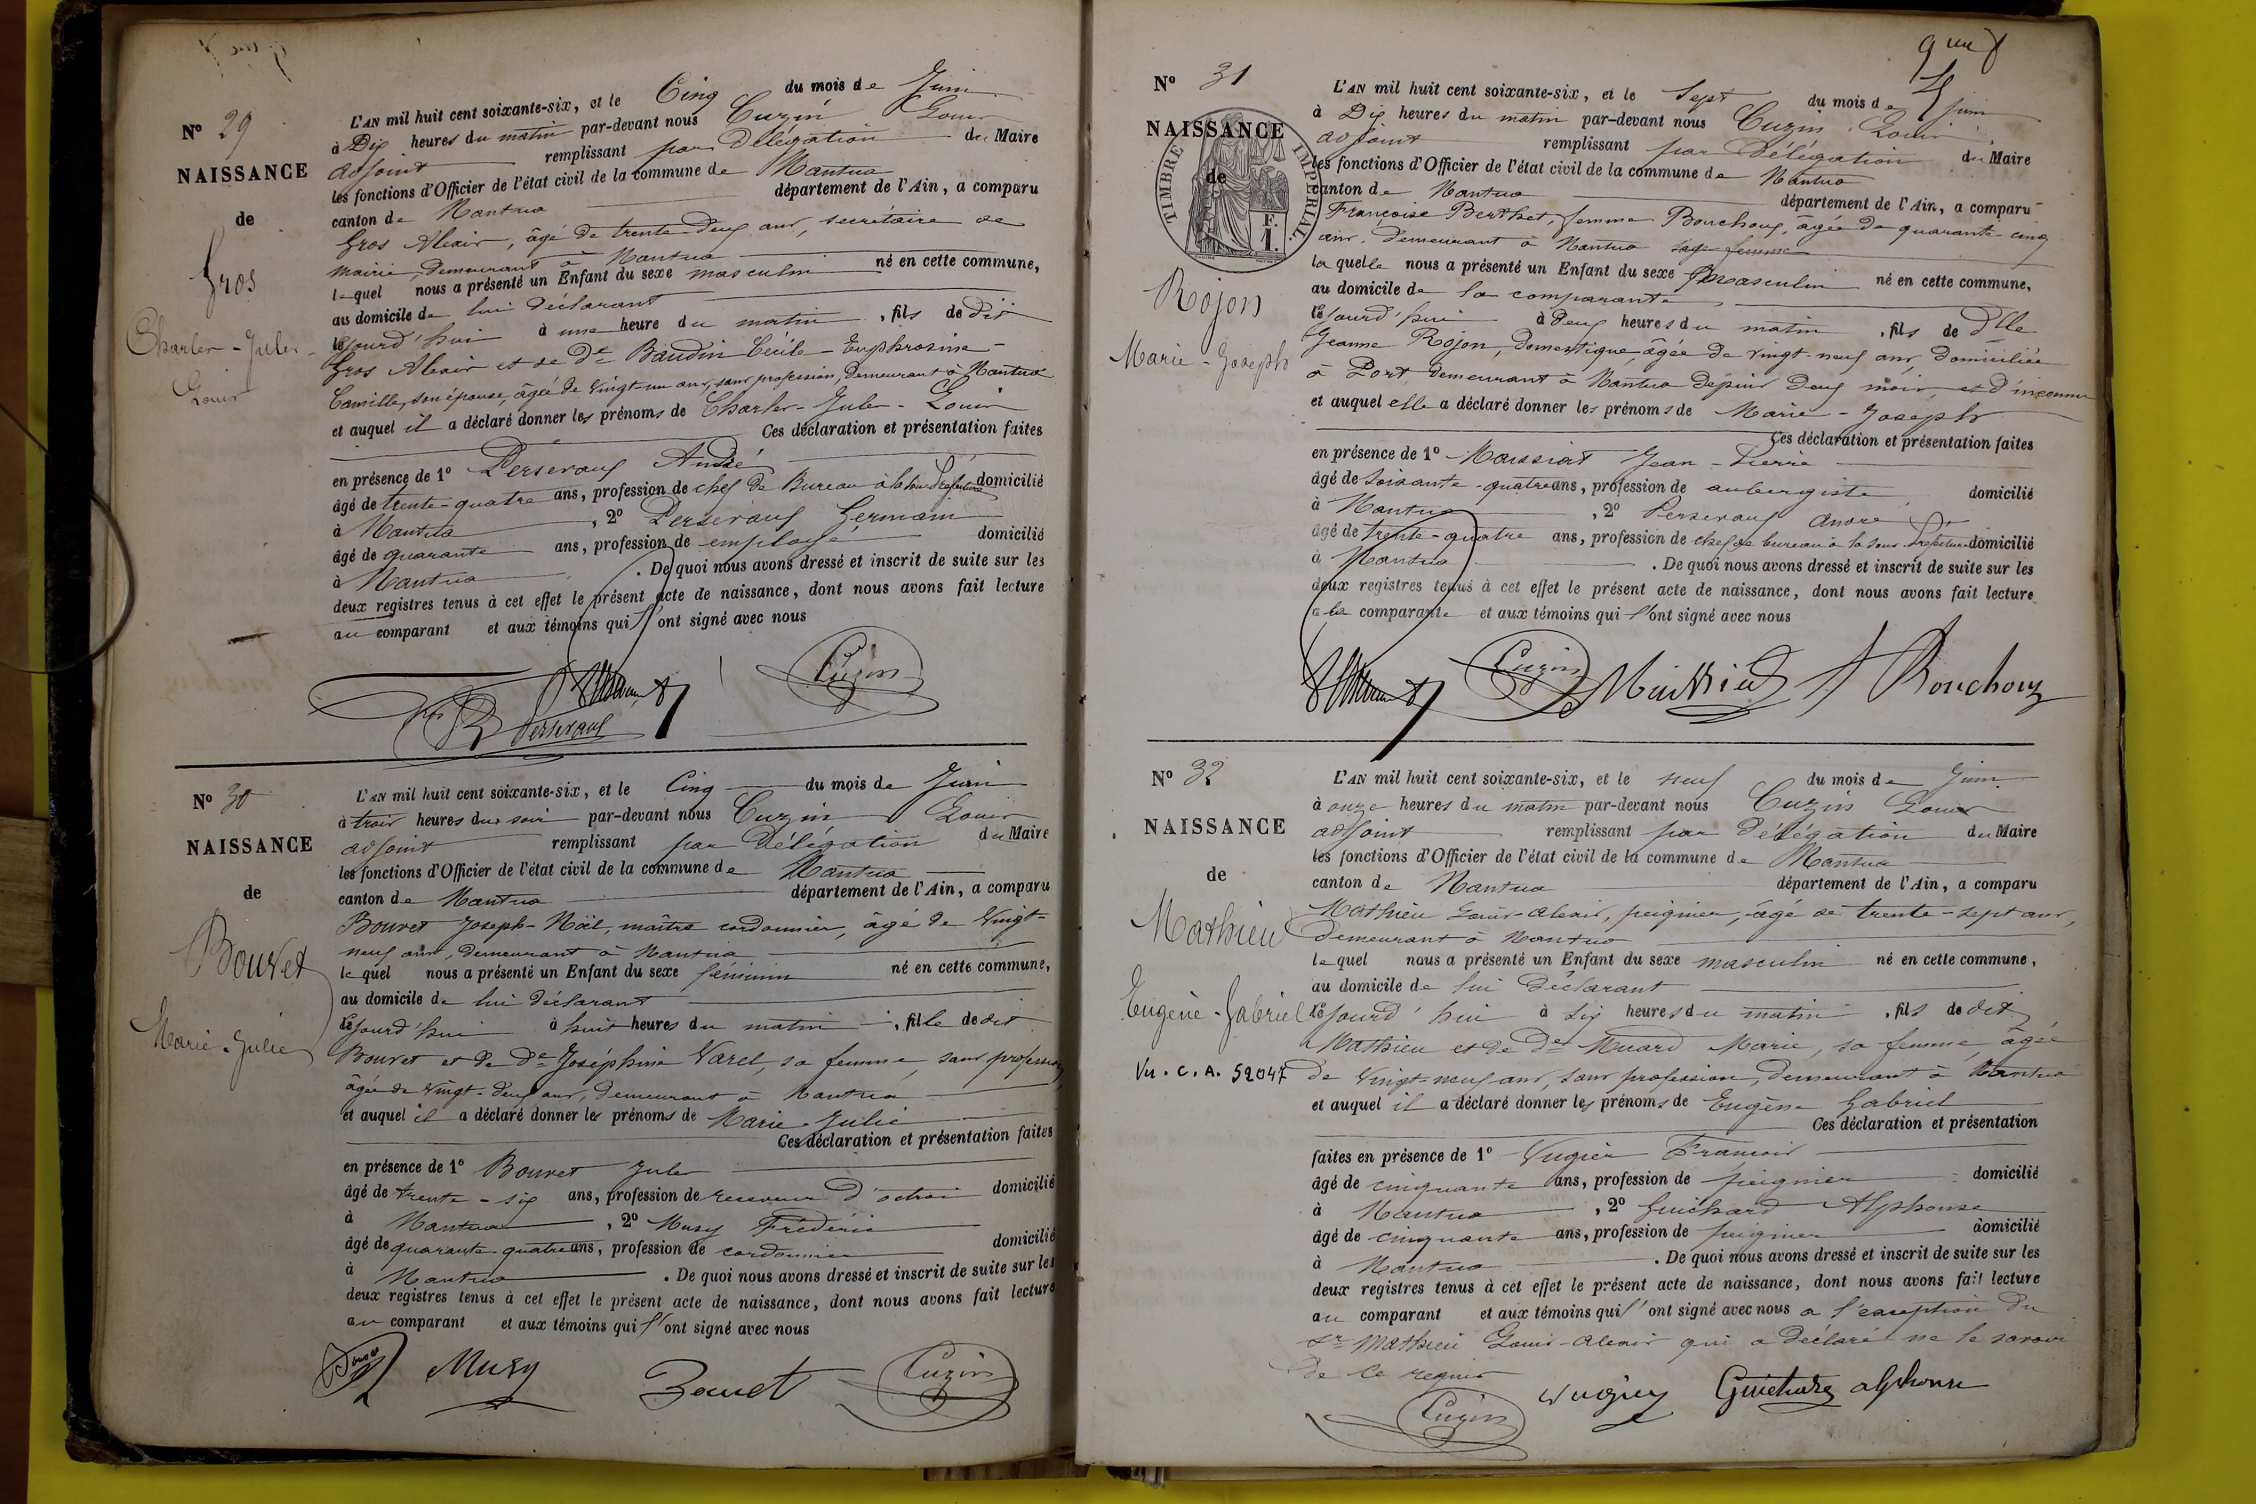 N° 29
NAISSANCE
de
Gros
Charles-Jules-
Louis
L'AN mil huit cent soixante-six, et le Cinq du mois de Juin
à Dix heures du matin par-devant nous Cuzin Louis
adjoint remplissant par Délégation du Maire
les fonctions d'Officier de l'état civil de la commune de Nantua
canton de Nantua département de l'Ain, a comparu
Gros Alexis, âgé de trente-deux ans, secrétaire de
mairie, demeurant à Nantua
lequel nous a présenté un Enfant du sexe masculin né en cette commune,
au domicile de lui déclarant
cejourd'hui à une heure du matin, fils de dit
Gros Alexis et de De Baudin Cécile-Euphrosine-
Camille, son épouse, âgée de vingt-un ans, sans profession, demeurant à Nantua
et auquel il a déclaré donner les prénoms de Charles-Jules-Louis
Ces déclaration et présentation faites
en présence de 1° Perseraux André
âgé de trente-quatre ans, profession de chef de Bureau à la Sous Préfecture domicilié
à Nantua, 2° Perseraux Germain
âgé de quarante ans, profession de employé domicilié
à Nantua. De quoi nous avons dressé et inscrit de suite sur les
deux registres tenus à cet effet le présent acte de naissance, dont nous avons fait lecture
au comparant et aux témoins qui l'ont signé avec nous
Gros Perseraux Cuzin
N° 30
NAISSANCE
de
Bouvet
Marie-Julie
L'AN mil huit cent soixante-six, et le Cinq du mois de Juin
à trois heures du soir par-devant nous Cuzin Louis
adjoint remplissant par Délégation du Maire
les fonctions d'Officier de l'état civil de la commune de Nantua
canton de Nantua département de l'Ain, a comparu
Bouvet Joseph-Noël, maître cordonnier, âgé de vingt-
neuf ans, demeurant à Nantua
lequel nous a présenté un Enfant du sexe féminin né en cette commune,
au domicile de lui déclarant
cejourd'hui à huit heures du matin, fille de dit
Bouvet et de De Joséphine Varel, sa femme, sans profession
âgée de vingt-deux ans, demeurant à Nantua
et auquel il a déclaré donner les prénoms de Marie-Julie
Ces déclaration et présentation faites
en présence de 1° Bouvet Jules
âgé de trente-six ans, profession de receveur d'octroi domicilié
à Nantua, 2° Musy Frédéric
âgé de quarante-quatre ans, profession de cordonnier domicilié
à Nantua. De quoi nous avons dressé et inscrit de suite sur les
deux registres tenus à cet effet le présent acte de naissance, dont nous avons fait lecture
au comparant et aux témoins qui l'ont signé avec nous
Musy Bouvet Cuzin
N° 31
NAISSANCE
de
TIMBRE IMPÉRIAL
F.
1.
Rojon
Marie-Joseph
L'AN mil huit cent soixante-six, et le Sept du mois de Juin
à Dix heures du matin par-devant nous Cuzin Louis
adjoint remplissant par Délégation du Maire
les fonctions d'Officier de l'état civil de la commune de Nantua
canton de Nantua département de l'Ain, a comparu
Françoise Berthet, femme Bouchoux, âgée de quarante-cinq
ans, demeurant à Nantua sage-femme
laquelle nous a présenté un Enfant du sexe masculin né en cette commune,
au domicile de la comparante,
cejourd'hui à deux heures du matin, fils de Dlle
Jeanne Rojon, domestique, âgée de vingt-neuf ans, domiciliée
à Port, demeurant à Nantua depuis deux mois, et d'inconnu
et auquel elle a déclaré donner les prénoms de Marie-Joseph
Ces déclaration et présentation faites
en présence de 1° Maissiat Jean-Pierre
âgé de soixante-quatre ans, profession de aubergiste domicilié
à Nantua, 2° Perseraux André
âgé de trente-quatre ans, profession de chef de bureau à la Sous-Préfecture domicilié
à Nantua. De quoi nous avons dressé et inscrit de suite sur les
deux registres tenus à cet effet le présent acte de naissance, dont nous avons fait lecture
a la comparante et aux témoins qui l'ont signé avec nous
Cuzin Maissiat f Bouchoux
N° 32
NAISSANCE
de
Mathieu
Eugène-Gabriel
Vu. C. A. 52047
L'AN mil huit cent soixante-six, et le neuf du mois de Juin
à onze heures du matin par-devant nous Cuzin Louis
adjoint remplissant par délégation du Maire
les fonctions d'Officier de l'état civil de la commune de Nantua
canton de Nantua département de l'Ain, a comparu
Mathieu Louis-Alexis, peignier, âgé de trente-sept ans,
demeurant à Nantua
lequel nous a présenté un Enfant du sexe masculin né en cette commune,
au domicile de lui Déclarant
cejourd'hui à six heures du matin, fils de dit
Mathieu et de De Muard Marie, sa femme âgée
de vingt-neuf ans, sans profession, demeurant à Nantua
et auquel il a déclaré donner les prénoms de Eugène Gabriel
Ces déclaration et présentation
faites en présence de 1° Vugier François
âgé de cinquante ans, profession de peignier domicilié
à Nantua, 2° Guichard Alphonse
âgé de cinquante ans, profession de peignier domicilié
à Nantua. De quoi nous avons dressé et inscrit de suite sur les
deux registres tenus à cet effet le présent acte de naissance, dont nous avons fait lecture
au comparant et aux témoins qui l'ont signé avec nous a l'exception du
Sr Mathieu Louis-Alexis qui a déclaré ne le savoir
de ce requis
Cuzin Vugier Guichard alphonse